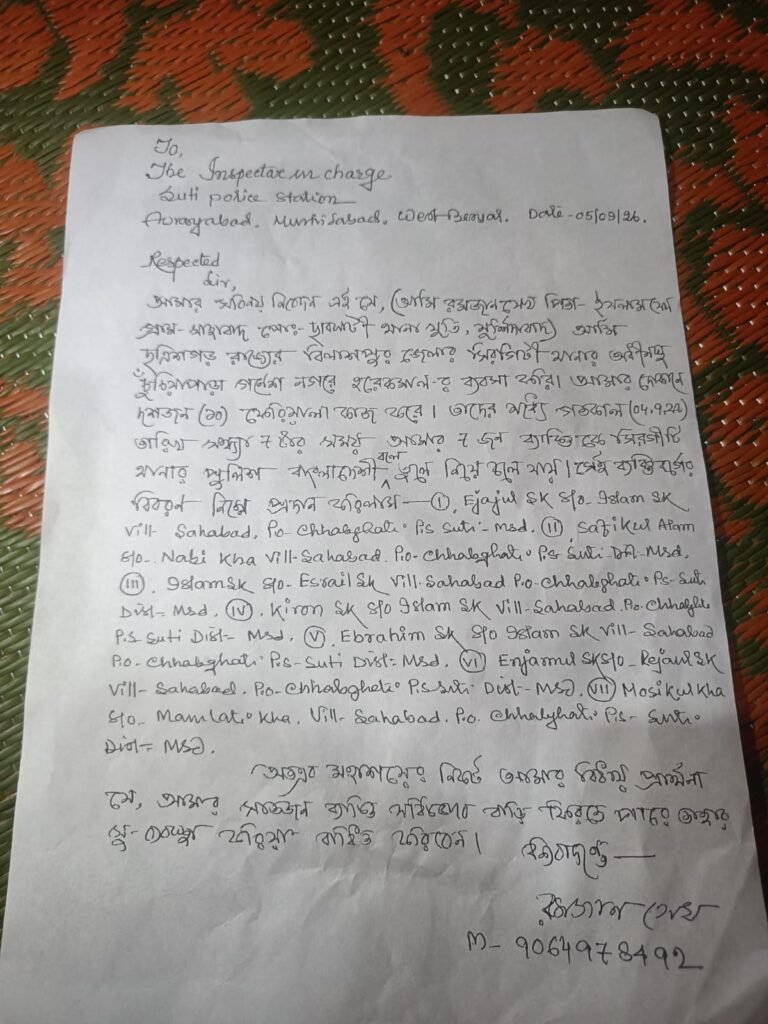 To,
The Inspector in charge
Suti police station
Aurangabad, Murshidabad, West Bengal. Date - 05/09/26.
Respected
Sir,
আমার সবিনয় নিবেদন এই যে, (আমি রমজান সেখ পিতা- ইসলাম সেখ
গ্রাম- সাহাবাদ পোঃ- ছাবঘাটী থানা সুতি, মুর্শিদাবাদ) আমি
ছত্রিশগড় রাজ্যের বিলাশপুর জেলার সিরগিটী থানার অধীনস্থ
গনেশ নগরে হরেকমাল-র ব্যবসা করি। আমার দোকানে
দশজন (১০) ফেরিয়ালা কাজ করে। তাদের মধ্যে গতকাল (04.9.22)
তারিখ সন্ধ্যা 7 টার সময় আমার 7 জন ব্যাক্তিকে সিরগীটি
থানার পুলিশ বাংলাদেশী বলে তুলে নিয়ে চলে যায়। সেই ব্যক্তি বর্গের
বিবরন নিম্নে প্রদান করিলাম — (I). Ejajul SK S/o- Islam SK
Vill- Sahabad, P.o- Chhabghati. P.s Suti- Msd. (II). Safikul Alam
S/o- Nabi Kha Vill- Sahabad. P.o- Chhabghati. P.s Suti Dist- Msd.
(III). Islam SK S/o- Esrail SK Vill- Sahabad P.o- Chhabghati. P.s- Suti
Dist- Msd. (IV). Kiron SK S/o Islam SK Vill- Sahabad. P.o- Chhabghati
P.s Suti Dist- Msd. (V). Ebrahim SK S/o Islam SK Vill- Sahabad
P.o- Chhabghati. P.s- Suti Dist- Msd. (VI) Enjamul SK S/o- Rejaul SK
Vill- Sahabad. P.o- Chhabghati. P.s Suti. Dist- Msd. (VII) Mosikul Kha
S/o- Mamlat. Kha. Vill- Sahabad. P.o. Chhabghati. P.s- Suti.
Dist- Msd.
অতএব মহাশয়ের নিকট আমার বিনীত প্রার্থনা
যে, আমার সাতজন ব্যাক্তি সঠিকভাবে বাড়ি ফিরতে পারে তাহার
সু-ব্যবস্থা করিয়া বাধিত করিবেন।
ধন্যবাদান্তে —
রমজান সেখ
M- 9064978492